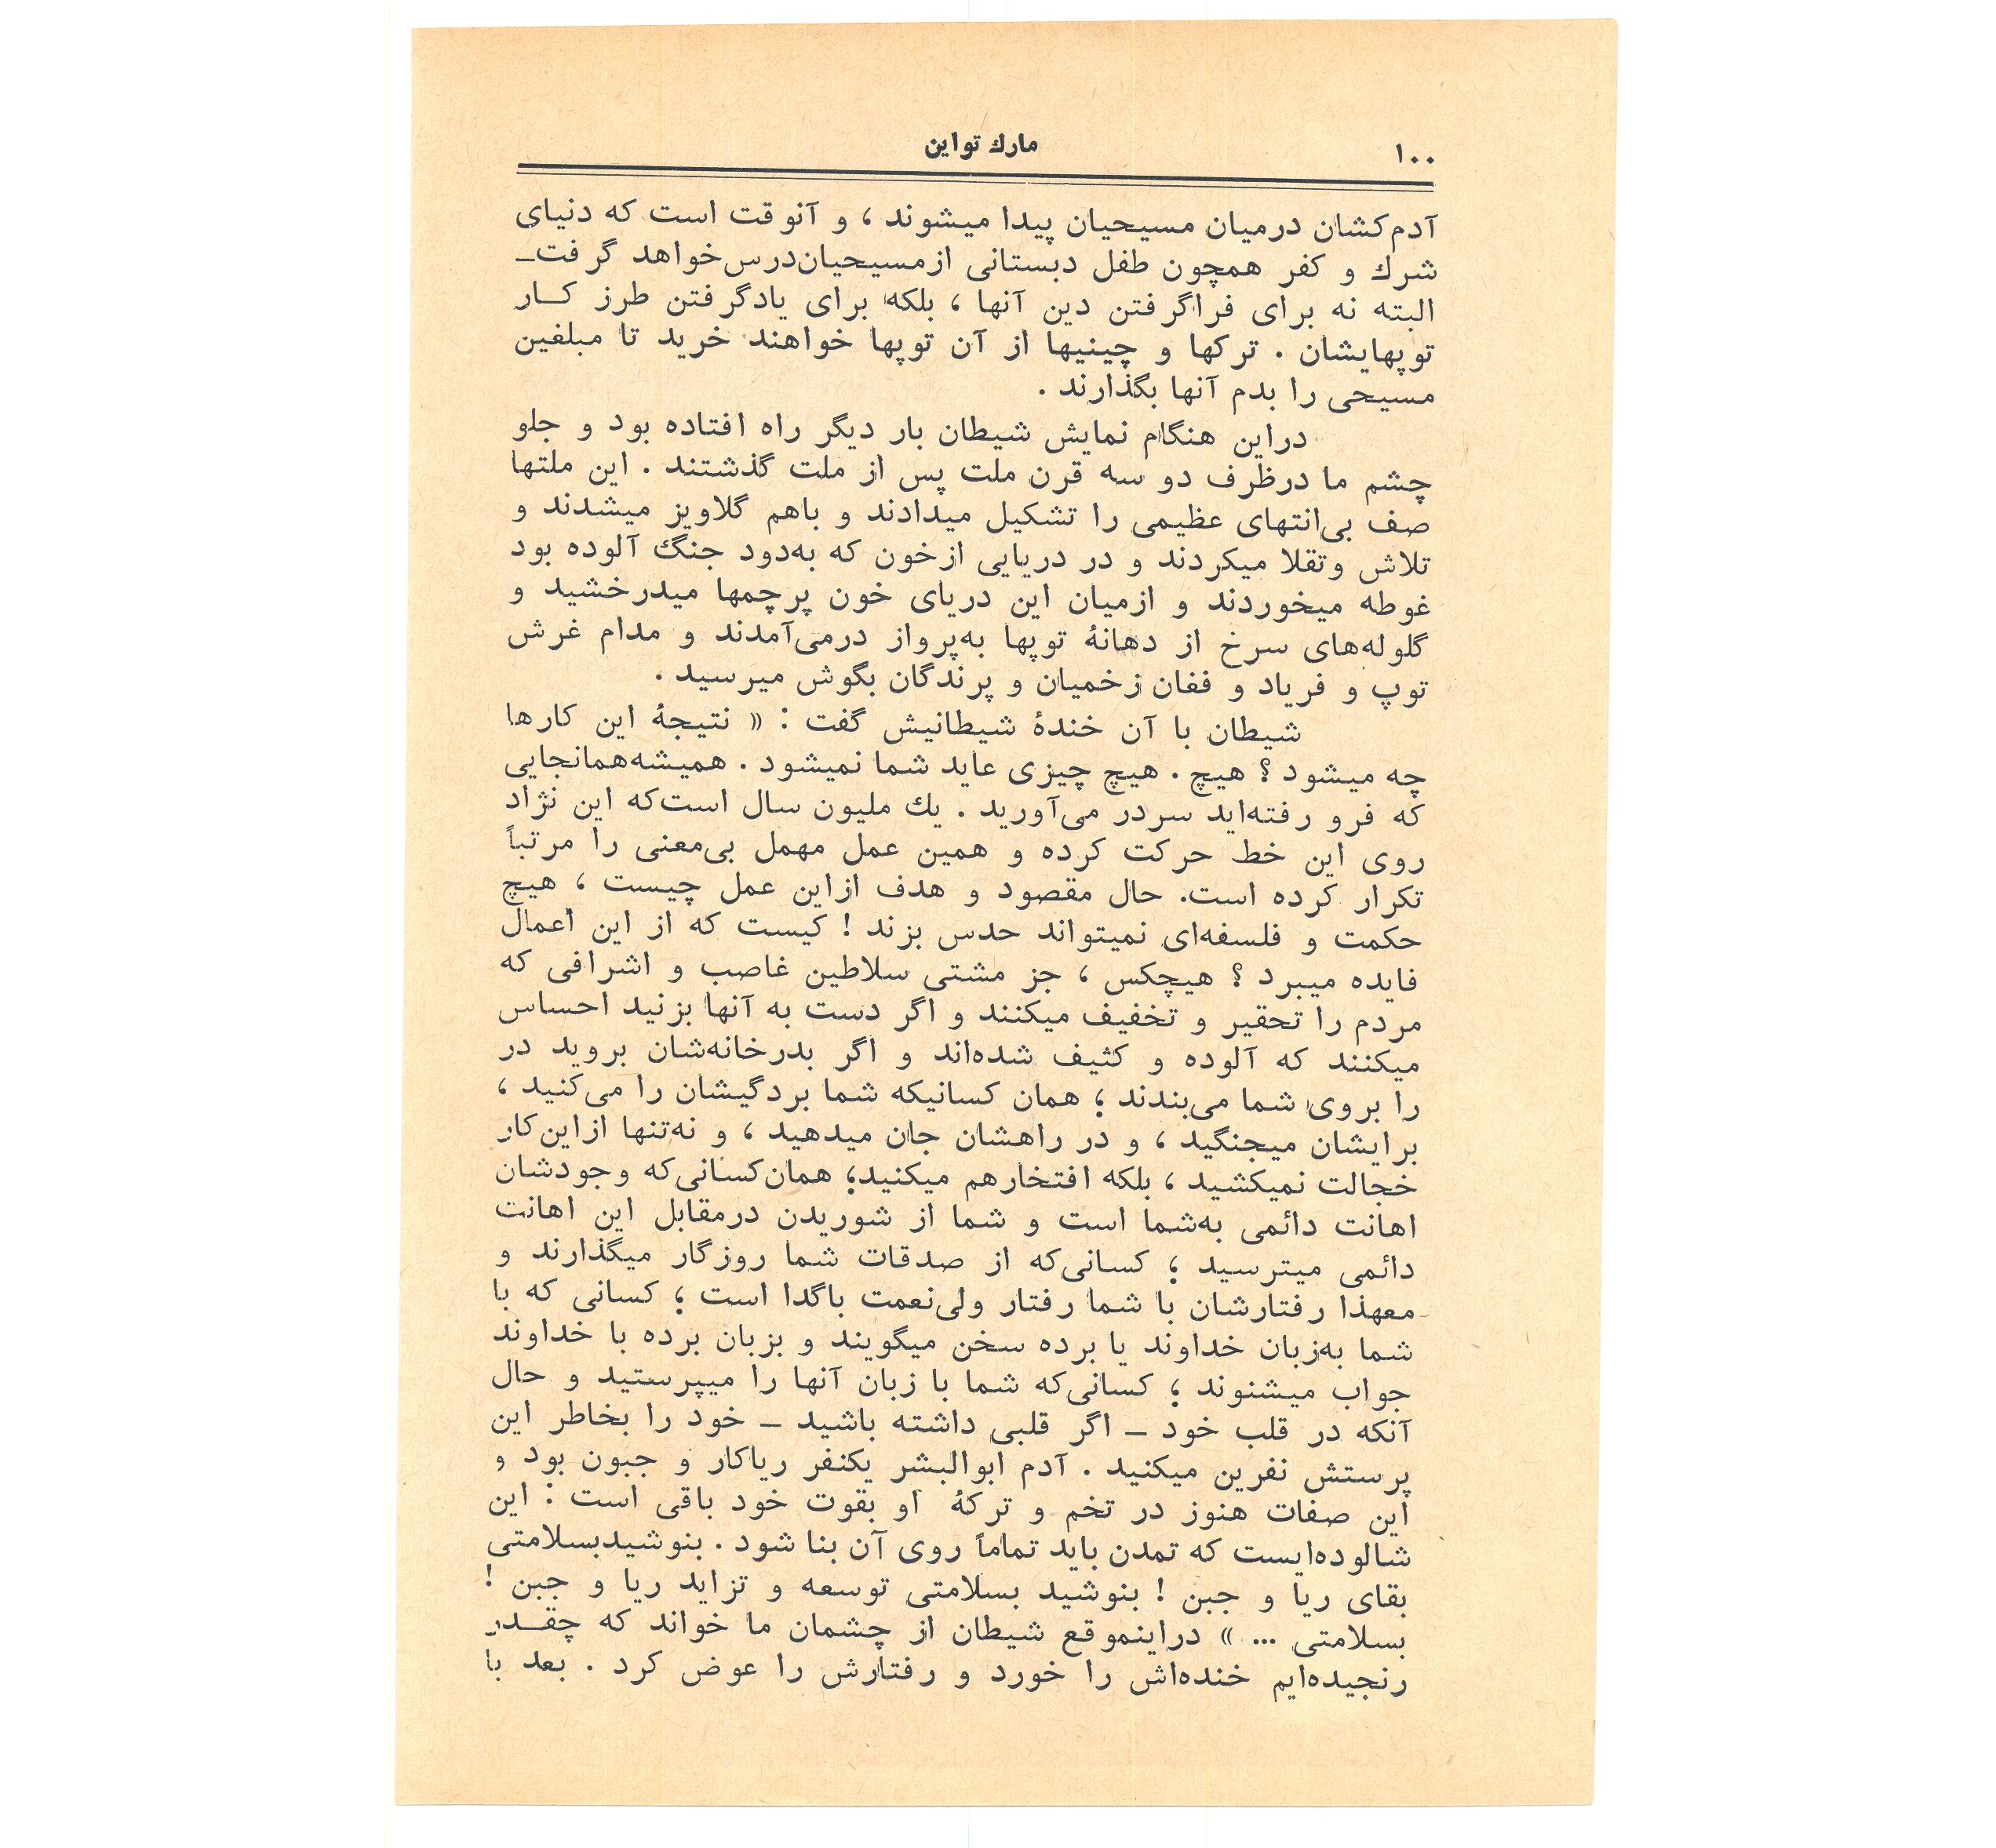 ۱۰۰
مارك تواین
آدم‌کشان درمیان مسیحیان پیدا میشوند ، و آنوقت است که دنیای
شرك و کفر همچون طفل دبستانی ازمسیحیان‌درس‌خواهد گرفت_
البته نه برای فراگرفتن دین آنها ، بلکه برای یادگرفتن طرز کــار
توپهایشان . ترکها و چینیها از آن توپها خواهند خرید تا مبلغین
مسیحی را بدم آنها بگذارند .
دراین هنگام نمایش شیطان بار دیگر راه افتاده بود و جلو
چشم ما درظرف دو سه قرن ملت پس از ملت گذشتند . این ملتها
صف بی‌انتهای عظیمی را تشکیل میدادند و باهم گلاویز میشدند و
تلاش وتقلا میکردند و در دریایی ازخون که به‌دود جنگ آلوده بود
غوطه میخوردند و ازمیان این دریای خون پرچمها میدرخشید و
گلوله‌های سرخ از دهانهٔ توپها به‌پرواز درمی‌آمدند و مدام غرش
توپ و فریاد و فغان زخمیان و پرندگان بگوش میرسید .
شیطان با آن خندهٔ شیطانیش گفت : « نتیجهٔ این کارها
چه میشود ؟ هیچ . هیچ چیزی عاید شما نمیشود . همیشه‌همانجایی
که فرو رفته‌اید سردر می‌آورید . یك ملیون سال است‌که این نژاد
روی این خط حرکت کرده و همین عمل مهمل بی‌معنی را مرتباً
تکرار کرده است. حال مقصود و هدف ازاین عمل چیست ، هیچ
حکمت و فلسفه‌ای نمیتواند حدس بزند ! کیست که از این اعمال
فایده میبرد ؟ هیچکس ، جز مشتی سلاطین غاصب و اشرافی که
مردم را تحقیر و تخفیف میکنند و اگر دست به آنها بزنید احساس
میکنند که آلوده و کثیف شده‌اند و اگر بدرخانه‌شان بروید در
را بروی شما می‌بندند ؛ همان کسانیکه شما بردگیشان را می‌کنید ،
برایشان میجنگید ، و در راهشان جان میدهید ، و نه‌تنها ازاین‌کار
خجالت نمیکشید ، بلکه افتخارهم میکنید؛ همان‌کسانی‌که وجودشان
اهانت دائمی به‌شما است و شما از شوریدن درمقابل این اهانت
دائمی میترسید ؛ کسانی‌که از صدقات شما روزگار میگذارند و
معهذا رفتارشان با شما رفتار ولی‌نعمت باگدا است ؛ کسانی که با
شما به‌زبان خداوند یا برده سخن میگویند و بزبان برده با خداوند
جواب میشنوند ؛ کسانی‌که شما با زبان آنها را میپرستید و حال
آنکه در قلب خود _ اگر قلبی داشته باشید _ خود را بخاطر این
پرستش نفرین میکنید . آدم ابوالبشر یکنفر ریاکار و جبون بود و
این صفات هنوز در تخم و ترکهٔ او بقوت خود باقی است : این
شالوده‌ایست که تمدن باید تماماً روی آن بنا شود . بنوشیدبسلامتی
بقای ریا و جبن ! بنوشید بسلامتی توسعه و تزاید ریا و جبن !
بسلامتی ... » دراینموقع شیطان از چشمان ما خواند که چقــدر
رنجیده‌ایم خنده‌اش را خورد و رفتارش را عوض کرد . بعد با